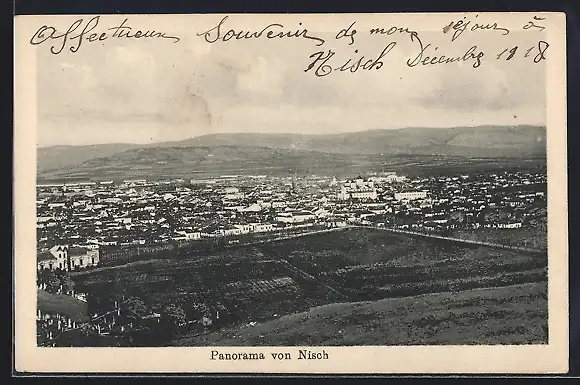 Affectueux Souvenir de mon séjour à
Nisch Décembre 1918
Panorama von Nisch